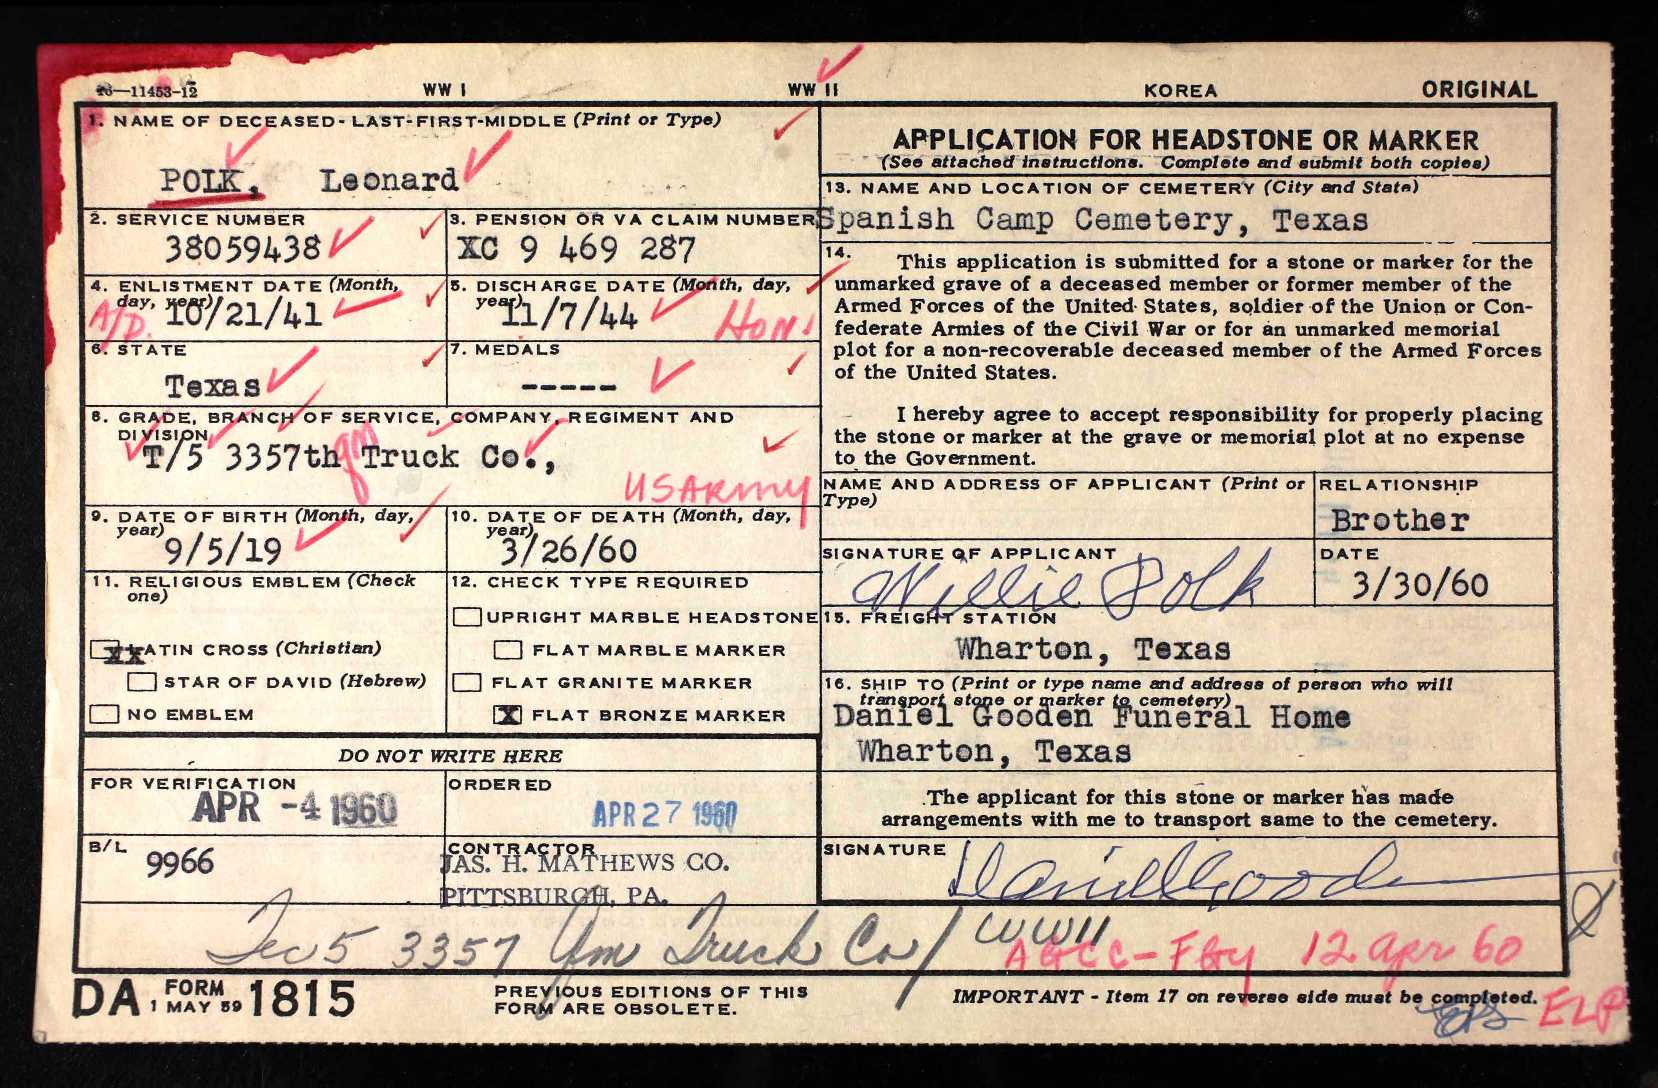 16—11453-12 WW I WW II KOREA ORIGINAL
1. NAME OF DECEASED - LAST-FIRST-MIDDLE (Print or Type)
POLK, Leonard
2. SERVICE NUMBER
38059438
3. PENSION OR VA CLAIM NUMBER
XC 9 469 287
4. ENLISTMENT DATE (Month,
day, year)
A/D. 10/21/41
5. DISCHARGE DATE (Month, day,
year)
11/7/44 HON
6. STATE
Texas
7. MEDALS
-----
8. GRADE, BRANCH OF SERVICE, COMPANY, REGIMENT AND
DIVISION
T/5 3357th qm Truck Co.,
US Army
9. DATE OF BIRTH (Month, day,
year)
9/5/19
10. DATE OF DEATH (Month, day,
year)
3/26/60
11. RELIGIOUS EMBLEM (Check
one)
xx LATIN CROSS (Christian)
STAR OF DAVID (Hebrew)
NO EMBLEM
12. CHECK TYPE REQUIRED
UPRIGHT MARBLE HEADSTONE
FLAT MARBLE MARKER
FLAT GRANITE MARKER
X FLAT BRONZE MARKER
DO NOT WRITE HERE
FOR VERIFICATION
APR -4 1960
ORDERED
APR 27 1960
B/L
9966
CONTRACTOR
JAS. H. MATHEWS CO.
PITTSBURGH, PA.
APPLICATION FOR HEADSTONE OR MARKER
(See attached instructions. Complete and submit both copies)
13. NAME AND LOCATION OF CEMETERY (City and State)
Spanish Camp Cemetery, Texas
14. This application is submitted for a stone or marker for the
unmarked grave of a deceased member or former member of the
Armed Forces of the United States, soldier of the Union or Con-
federate Armies of the Civil War or for an unmarked memorial
plot for a non-recoverable deceased member of the Armed Forces
of the United States.
I hereby agree to accept responsibility for properly placing
the stone or marker at the grave or memorial plot at no expense
to the Government.
NAME AND ADDRESS OF APPLICANT (Print or
Type)
RELATIONSHIP
Brother
SIGNATURE OF APPLICANT
Willie Polk
DATE
3/30/60
15. FREIGHT STATION
Wharton, Texas
16. SHIP TO (Print or type name and address of person who will
transport stone or marker to cemetery)
Daniel Gooden Funeral Home
Wharton, Texas
The applicant for this stone or marker has made
arrangements with me to transport same to the cemetery.
SIGNATURE
Daniel Gooden
Tec 5 3357 Qm Truck Co / WWII
AGCC-F&y 12 apr 60
DA FORM 1 MAY 59 1815
PREVIOUS EDITIONS OF THIS
FORM ARE OBSOLETE.
IMPORTANT - Item 17 on reverse side must be completed.
ELP